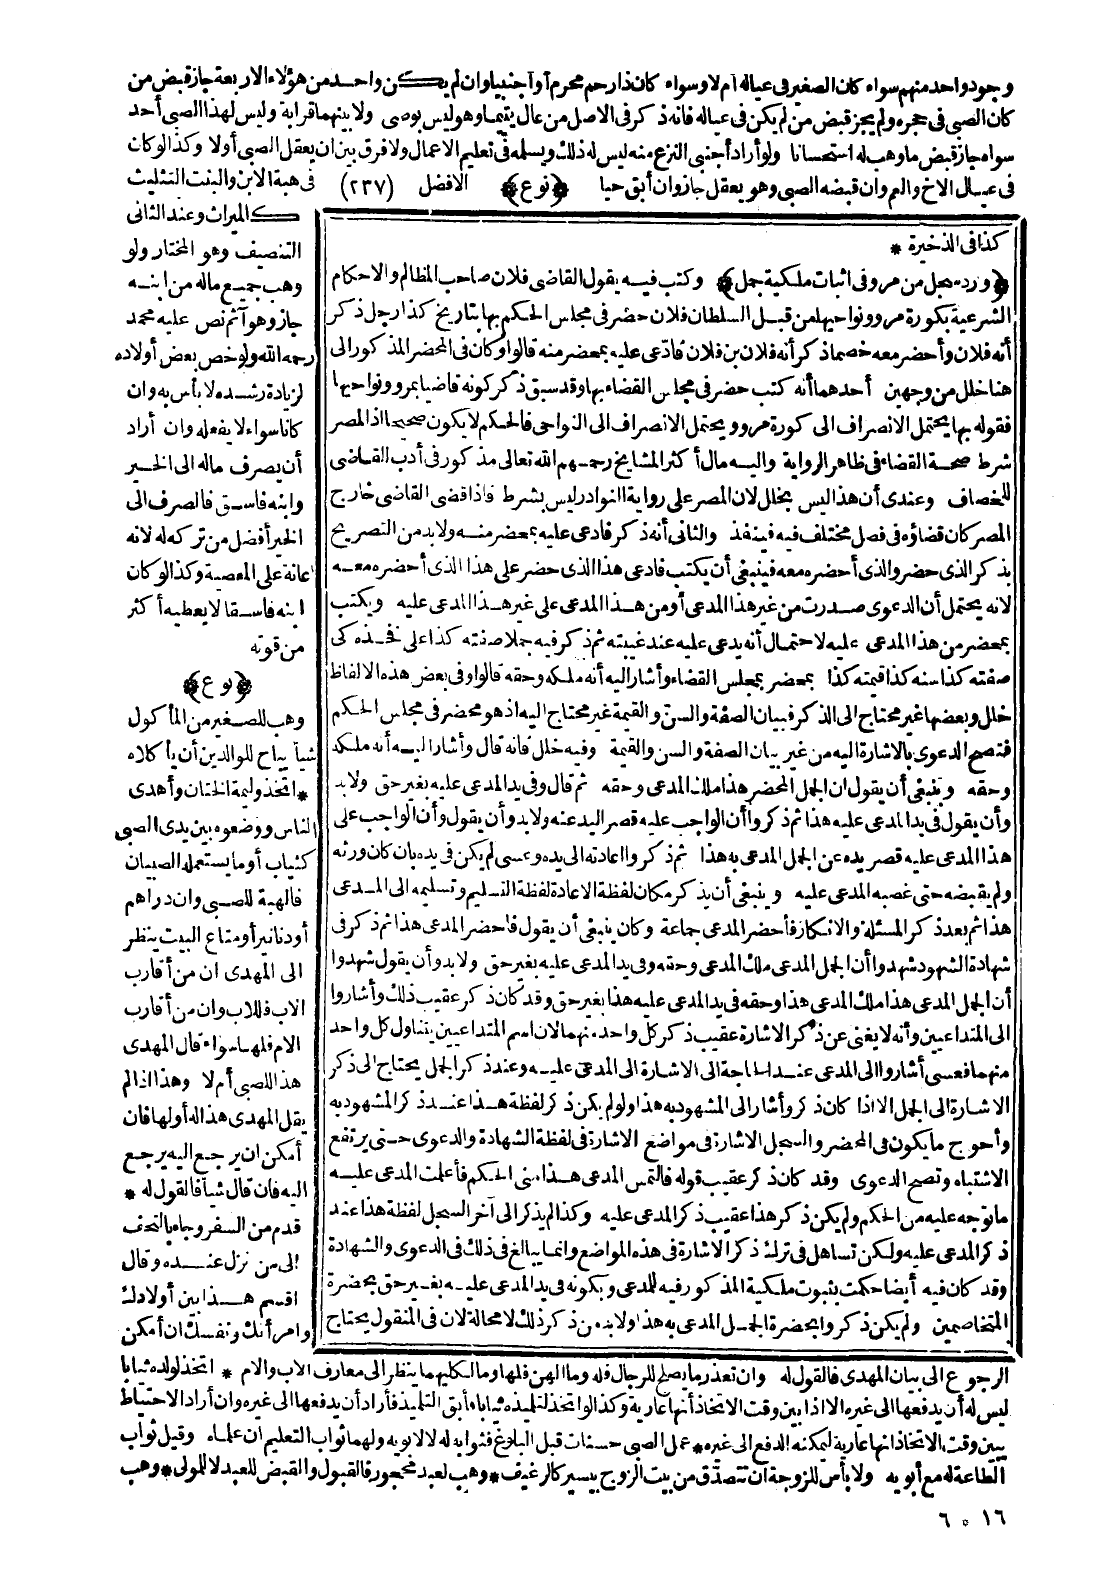 وجود واحد منهم سواء كان الصغير فى عياله أم لا وسواء كان ذا رحم محرم أو أجنبيا وان لم يكن واحد من هؤلاء الاربعة جاز قبض من
كان الصبى فى حجره ولم يجز قبض من لم يكن فى عياله فانه ذكر فى الاصل من عال يتيما وهو ليس بوصى ولا بينهما قرابة وليس لهذا الصبى أحد
سواه جاز قبض ما وهب له استحسانا ولو أراد أجنبى النزع منه ليس له ذلك ويسلمه فى تعليم الاعمال ولا فرق بين ان يعقل الصبى أولا وكذا لو كان
فى عيال الاخ والعم وان قبضه الصبى وهو يعقل جاز وان أبق حيا ﴿نوع﴾ الافضل (٢٣٧) فى هبة الابن والبنت التثليث
كالميراث وعند الثانى
التنصيف وهو المختار ولو
وهب جميع ماله من ابنه
جاز وهو آثم نص عليه محمد
رحمه الله ولو خص بعض أولاده
لزيادة رشده لا بأس به وان
كانا سواء لا يفعله وان أراد
أن يصرف ماله الى الخير
وابنه فاسق فالصرف الى
الخير أفضل من تركه له لانه
اعانة على المعصية وكذا لو كان
ابنه فاسقا لا يعطيه أكثر
من قوته
﴿نوع﴾
وهب للصغير من المأكول
شيأ يباح للوالدين أن يأكلاه
* اتخذ وليمة الختان وأهدى
الناس ووضعوه بين يدى الصبى
كثياب أو ما يستعمله الصبيان
فالهبة للصبى وان دراهم
أو دنانير أو متاع البيت ينظر
الى المهدى ان من أقارب
الاب فللاب وان من أقارب
الام فلها سواء قال المهدى
هذا للصبى أم لا وهذا اذا لم
يقل المهدى هذا له أولها فان
أمكن ان يرجع اليه يرجع
اليه فان قال شيأ فالقول له *
قدم من السفر وجاء بالتحف
الى من نزل عنده وقال
اقسم هذا بين أولادك
وامرأتك ونفسك ان أمكن
كذا فى الذخيرة *
﴿ورد سجل من مرو فى اثبات ملكية جمل﴾ وكتب فيه يقول القاضى فلان صاحب المظالم والاحكام
الشرعية بكورة مرو ونواحيها من قبل السلطان فلان حضر فى مجلس الحكم بها بتاريخ كذا رجل ذكر
أنه فلان وأحضر معه خصما ذكر أنه فلان بن فلان فادعى عليه بمحضر منه قالوا وكان فى المحضر المذكور الى
هنا خلل من وجهين أحدهما أنه كتب حضر فى مجلس القضاء بها وقد سبق ذكر كونه قاضيا بمرو ونواحيها
فقوله بها يحتمل الانصراف الى كورة مرو ويحتمل الانصراف الى النواحى فالحكم لا يكون صحيحا اذ المصر
شرط صحة القضاء فى ظاهر الرواية واليه مال أكثر المشايخ رحمهم الله تعالى مذكور فى أدب القاضى
للخصاف وعندى أن هذا ليس بخلل لان المصر على رواية النوادر ليس بشرط فاذا قضى القاضى خارج
المصر كان قضاؤه فى فصل مختلف فيه فينفذ والثانى أنه ذكر فادعى عليه بمحضر منه ولابد من التصريح
بذكر الذى حضر والذى أحضره معه فينبغى أن يكتب فادعى هذا الذى حضر على هذا الذى أحضره معه
لانه يحتمل أن الدعوى صدرت من غير هذا المدعى أو من هذا المدعى على غير هذا المدعى عليه ويكتب
بمحضر من هذا المدعى عليه لاحتمال أنه يدعى عليه عند غيبته ثم ذكر فيه جملا صفته كذا على فخذه كى
صفته كذا سنه كذا قيمته كذا بمحضر بمجلس القضاء وأشار اليه أنه ملكه وحقه قالوا وفى بعض هذه الالفاظ
خلل وبعضها غير محتاج الى الذكر فبيان الصفة والسن والقيمة غير محتاج اليه اذ هو محضر فى مجلس الحكم
فتصح الدعوى بالاشارة اليه من غير بيان الصفة والسن والقيمة وفيه خلل فانه قال وأشار اليه أنه ملكه
وحقه وينبغى أن يقول ان الجمل المحضر هذا ملك المدعى وحقه ثم قال وفى يد المدعى عليه بغير حق ولابد
وأن يقول فى يد المدعى عليه هذا ثم ذكروا أن الواجب عليه قصر اليد عنه ولابد وأن يقول وأن الواجب على
هذا المدعى عليه قصر يده عن الجمل المدعى به هذا ثم ذكروا اعادته الى يده وعسى لم يكن فى يده بان كان ورثه
ولم يقبضه حتى غصبه المدعى عليه وينبغى أن يذكر مكان لفظة الاعادة لفظة التسليم وتسليمه الى المدعى
هذا ثم بعد ذكر المسئلة والانكار فأحضر المدعى جماعة وكان ينبغى أن يقول فاحضر المدعى هذا ثم ذكر فى
شهادة الشهود شهدوا أن الجمل المدعى ملك المدعى وحقه وفى يد المدعى عليه بغير حق ولابد وأن يقول شهدوا
أن الجمل المدعى هذا ملك المدعى هذا وحقه فى يد المدعى عليه هذا بغير حق وقد كان ذكر عقيب ذلك وأشاروا
الى المتداعيين وأنه لا يغنى عن ذكر الاشارة عقيب ذكر كل واحد منهما لان اسم المتداعيين يتناول كل واحد
منهما فعسى أشاروا الى المدعى عند الحاجة الى الاشارة الى المدعى عليه وعند ذكر الجمل يحتاج الى ذكر
الاشارة الى الجمل الا اذا كان ذكر وأشار الى المشهود به هذا ولو لم يكن ذكر لفظة هذا عند ذكر المشهود به
وأحوج ما يكون فى المحضر والسجل الاشارة فى مواضع الاشارة فى لفظة الشهادة والدعوى حتى يرتفع
الاشتباه وتصح الدعوى وقد كان ذكر عقيب قوله فالتمس المدعى هذا منى الحكم فأعلمت المدعى عليه
ما توجه عليه من الحكم ولم يكن ذكر هذا عقيب ذكر المدعى عليه وكذا لم يذكر الى آخر السجل لفظة هذا عند
ذكر المدعى عليه ولكن تساهل فى ترك ذكر الاشارة فى هذه المواضع وانما يبالغ فى ذلك فى الدعوى والشهادة
وقد كان فيه أيضا حكمت بثبوت ملكية المذكور فيه للمدعى وبكونه فى يد المدعى عليه بغير حق بحضرة
المتخاصمين ولم يكن ذكروا بحضرة الجمل المدعى به هذا ولابد من ذكر ذلك لا محالة لان فى المنقول يحتاج
الرجوع الى بيان المهدى فالقول له وان تعذر ما يصلح للرجال فله وما لهن فلها وما لكليهما ينظر الى معارف الاب والام * اتخذ لولده ثيابا
ليس له أن يدفعها الى غيره الا اذا بين وقت الاتخاذ أنها عارية وكذا لو اتخذ لتلميذه ثيابا فأبق التلميذ فأراد أن يدفعها الى غيره وان أراد الاحتياط
يبين وقت الاتخاذ انها عارية ليمكنه الدفع الى غيره * عمل الصبى حسنات قبل البلوغ فثوابه له لا لابويه ولهما ثواب التعليم ان علماه وقيل ثواب
الطاعة له مع أبويه ولا بأس للزوجة ان تتصدق من بيت الزوج بيسير كالرغيف * وهب لعبد محجور فالقبول والقبض للعبد لا للمولى * وهب
١٦ * ٦